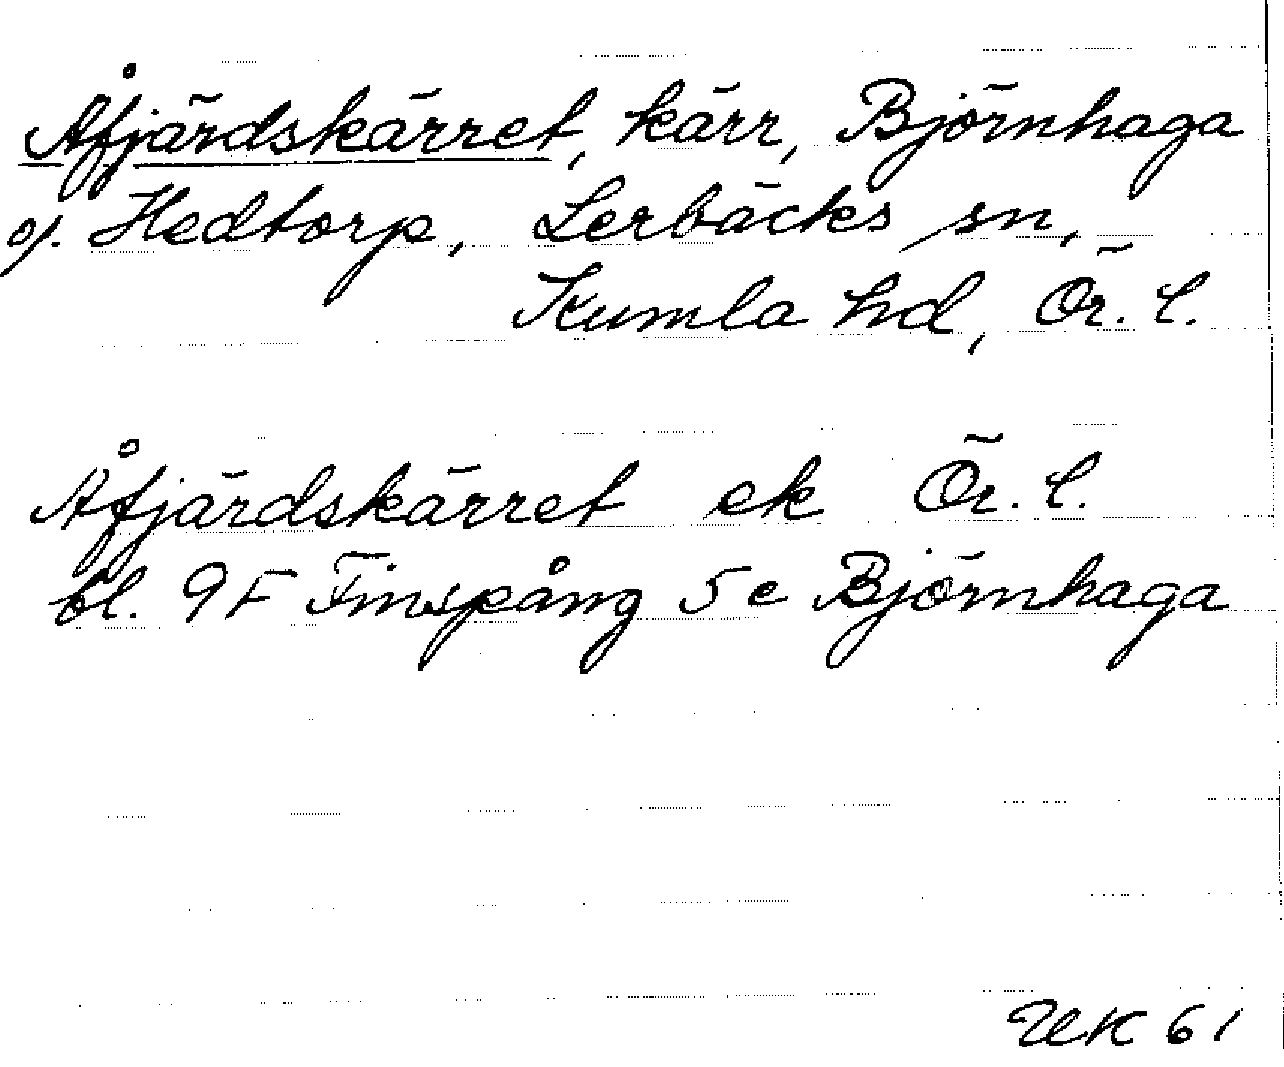 Åfjärdskärret, kärr, Björnhaga
o/. Hedtorp, Lerbäcks sn,
Kumla hd, Ör. l.
Åfjärdskärret ek Ör. l.
bl. 9F Finspång 5e Björnhaga
UK 61